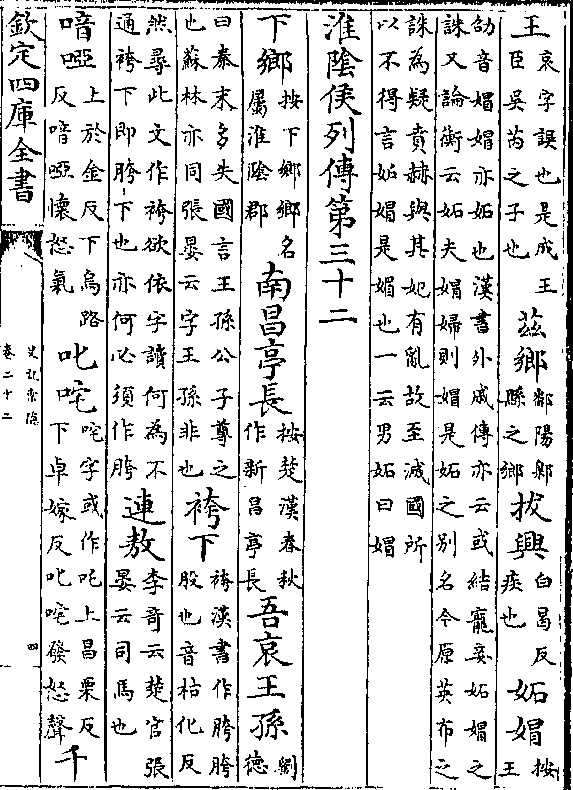 王哀字誤也是成王臣吳芮之子也茲鄉鄱陽鄡縣之鄉拔興白曷反疾也妬媢按王
劭音媢媢亦妬也漢書外戚傳亦云或結寵妾妬媢之
誅又論衡云妬夫媢婦則媢是妬之別名今原英布之
誅為疑賁赫與其妃有亂故至滅國所
以不得言妬媢是媢也一云男妬曰媢
淮陰侯列傳第三十二
下鄉按下鄉鄉名屬淮陰郡南昌亭長按楚漢春秋作新昌亭長吾哀王孫劉德
曰秦末多失國言王孫公子尊之也蘇林亦同張晏云字王孫非也袴下袴漢書作胯胯股也音枯化反
然尋此文作袴欲依字讀何為不通袴下即胯下也亦何必須作胯連敖李奇云楚官張晏云司馬也
喑啞上於金反下烏路反喑啞懷怒氣叱咤咤字或作吒上昌栗反下卓嫁反叱咤發怒聲千
欽定四庫全書
史記索隱
卷二十二
四